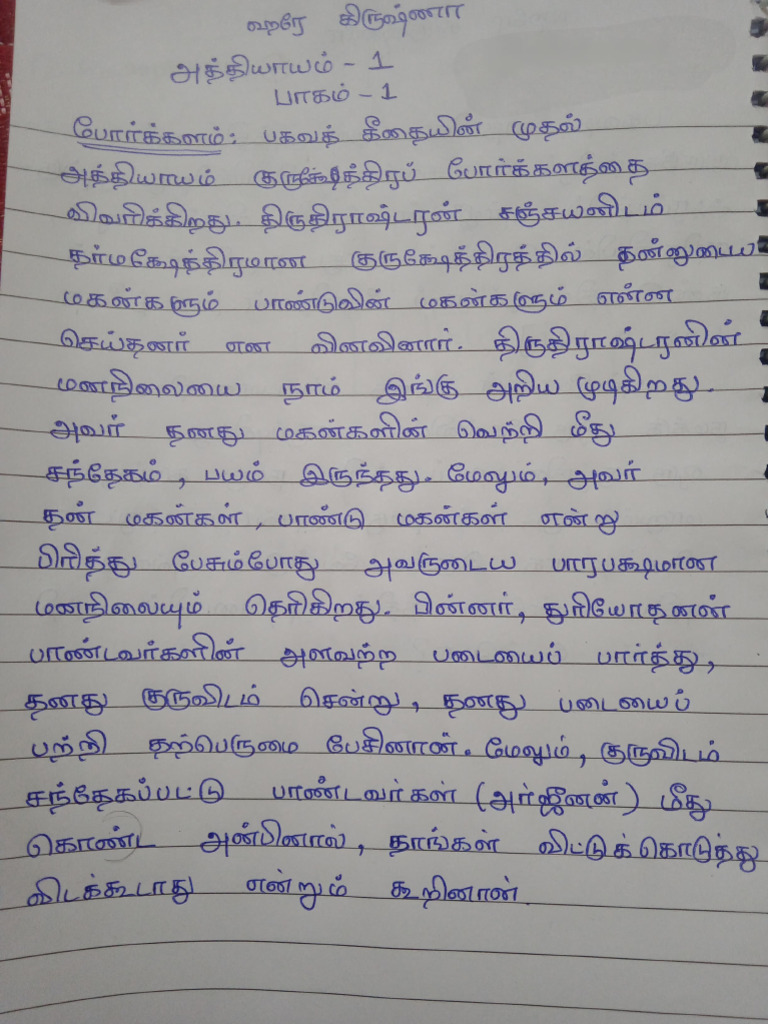 ஹரே கிருஷ்ணா
அத்தியாயம் - 1
பாகம் - 1
போர்க்களம்: பகவத் கீதையின் முதல்
அத்தியாயம் குருக்ஷேத்திரப் போர்க்களத்தை
விவரிக்கிறது. திருதிராஷ்டரன் சஞ்சயனிடம்
தர்மக்ஷேத்திரமான குருக்ஷேத்திரத்தில் தன்னுடைய
மகன்களும் பாண்டுவின் மகன்களும் என்ன
செய்தனர் என வினவினார். திருதிராஷ்டரனின்
மனநிலையை நாம் இங்கு அறிய முடிகிறது.
அவர் தனது மகன்களின் வெற்றி மீது
சந்தேகம், பயம் இருந்தது. மேலும், அவர்
தன் மகன்கள், பாண்டு மகன்கள் என்று
பிரித்து பேசும்போது அவருடைய பாரபக்ஷமான
மனநிலையும் தெரிகிறது. பின்னர், துரியோதனன்
பாண்டவர்களின் அளவற்ற படையைப் பார்த்து,
தனது குருவிடம் சென்று, தனது படையைப்
பற்றி தற்பெருமை பேசினான். மேலும், குருவிடம்
சந்தேகப்பட்டு பாண்டவர்கள் (அர்ஜீனன்) மீது
கொண்ட அன்பினால், தாங்கள் விட்டுக்கொடுத்து
விடக்கூடாது என்றும் கூறினான்.